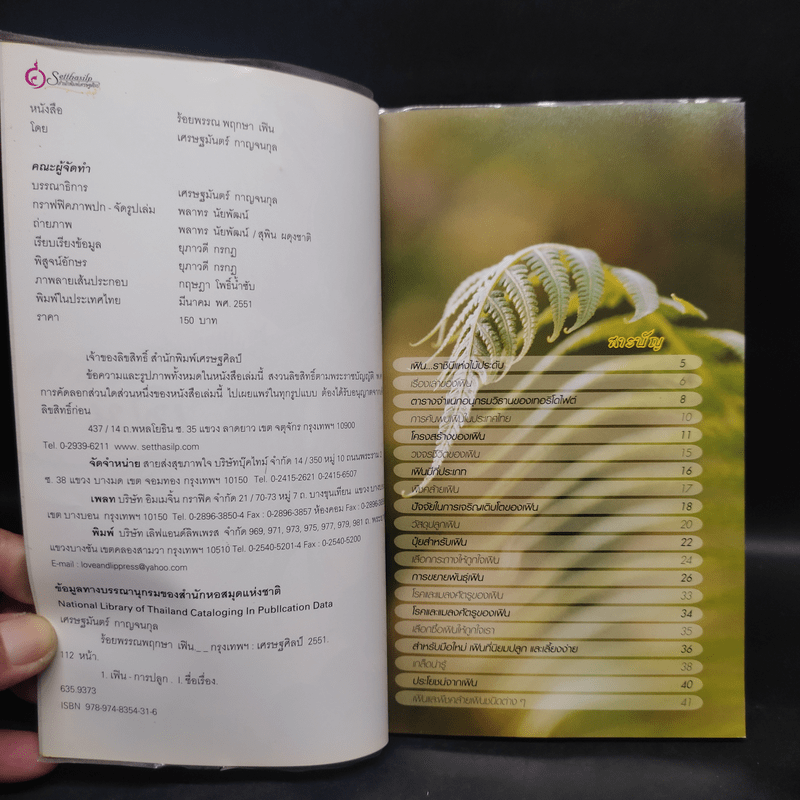 Setthasilp
หนังสือ ร้อยพรรณ พฤกษา เฟิน
โดย เศรษฐมันตร์ กาญจนกุล
คณะผู้จัดทำ
บรรณาธิการ เศรษฐมันตร์ กาญจนกุล
กราฟฟิคภาพปก - จัดรูปเล่ม พลาทร นัยพัฒน์
ถ่ายภาพ พลาทร นัยพัฒน์ / สุพิน ผดุงชาติ
เรียบเรียงข้อมูล ยุภาวดี กรกฎ
พิสูจน์อักษร ยุภาวดี กรกฎ
ภาพลายเส้นประกอบ กฤษฎา โพธิ์น้ำซับ
พิมพ์ในประเทศไทย มีนาคม พศ. 2551
ราคา 150 บาท
เจ้าของลิขสิทธิ์ สำนักพิมพ์เศรษฐศิลป์
ข้อความและรูปภาพทั้งหมดในหนังสือเล่มนี้ สงวนลิขสิทธิ์ตามพระราชบัญญัติ
การคัดลอกส่วนใดส่วนหนึ่งของหนังสือเล่มนี้ ไปเผยแพร่ในทุกรูปแบบ ต้องได้รับอนุญาตจาก
ลิขสิทธิ์ก่อน
437 / 14 ถ.พหลโยธิน ซ. 35 แขวง ลาดยาว เขต จตุจักร กรุงเทพฯ 10900
Tel. 0-2939-6211 www. setthasilp.com
จัดจำหน่าย สายส่งสุขภาพใจ บริษัทบุ๊คไทม์ จำกัด 14 / 350 หมู่ 10 ถนนพระราม 2
ซ. 38 แขวง บางมด เขต จอมทอง กรุงเทพฯ 10150 Tel. 0-2415-2621 0-2415-6507
เพลท บริษัท อิมเมจิ้น กราฟิค จำกัด 21 / 70-73 หมู่ 7 ถ. บางขุนเทียน แขวง บาง
เขต บางบอน กรุงเทพฯ 10150 Tel. 0-2896-3850-4 Fax : 0-2896-3857 ห้องคอม Fax : 0-2896-
พิมพ์ บริษัท เลิฟแอนด์ลิพเพรส จำกัด 969, 971, 973, 975, 977, 979, 981 ถ.
แขวงบางชัน เขตคลองสามวา กรุงเทพฯ 10510 Tel. 0-2540-5201-4 Fax : 0-2540-5200
E-mail : loveandlippress@yahoo.com
ข้อมูลทางบรรณานุกรมของสำนักหอสมุดแห่งชาติ
National Library of Thailand Cataloging In Publlcation Data
เศรษฐมันตร์ กาญจนกุล
ร้อยพรรณพฤกษา เฟิน_ _ กรุงเทพฯ : เศรษฐศิลป์ 2551.
112 หน้า.
1. เฟิน - การปลูก . I. ชื่อเรื่อง.
635.9373
ISBN 978-974-8354-31-6
สารบัญ
เฟิน...ราชินีแห่งไม้ประดับ 5
เรื่องเล่าของเฟิน 6
ตารางจำแนกอนุกรมวิธานของเทอริโดไฟต์ 8
การค้นพบเฟินในประเทศไทย 10
โครงสร้างของเฟิน 11
วงจรชีวิตของเฟิน 15
เฟินมีกี่ประเภท 16
พืชคล้ายเฟิน 17
ปัจจัยในการเจริญเติบโตของเฟิน 18
วัสดุปลูกเฟิน 20
ปุ๋ยสำหรับเฟิน 22
เลือกกระถางให้ถูกใจเฟิน 24
การขยายพันธุ์เฟิน 26
โรคและแมลงศัตรูของเฟิน 33
โรคและแมลงศัตรูของเฟิน 34
เลือกซื้อเฟินให้ถูกใจเรา 35
สำหรับมือใหม่ เฟินที่นิยมปลูก และเลี้ยงง่าย 36
เกล็ดน่ารู้ 38
ประโยชน์จากเฟิน 40
เฟินและพืชคล้ายเฟินชนิดต่าง ๆ 41